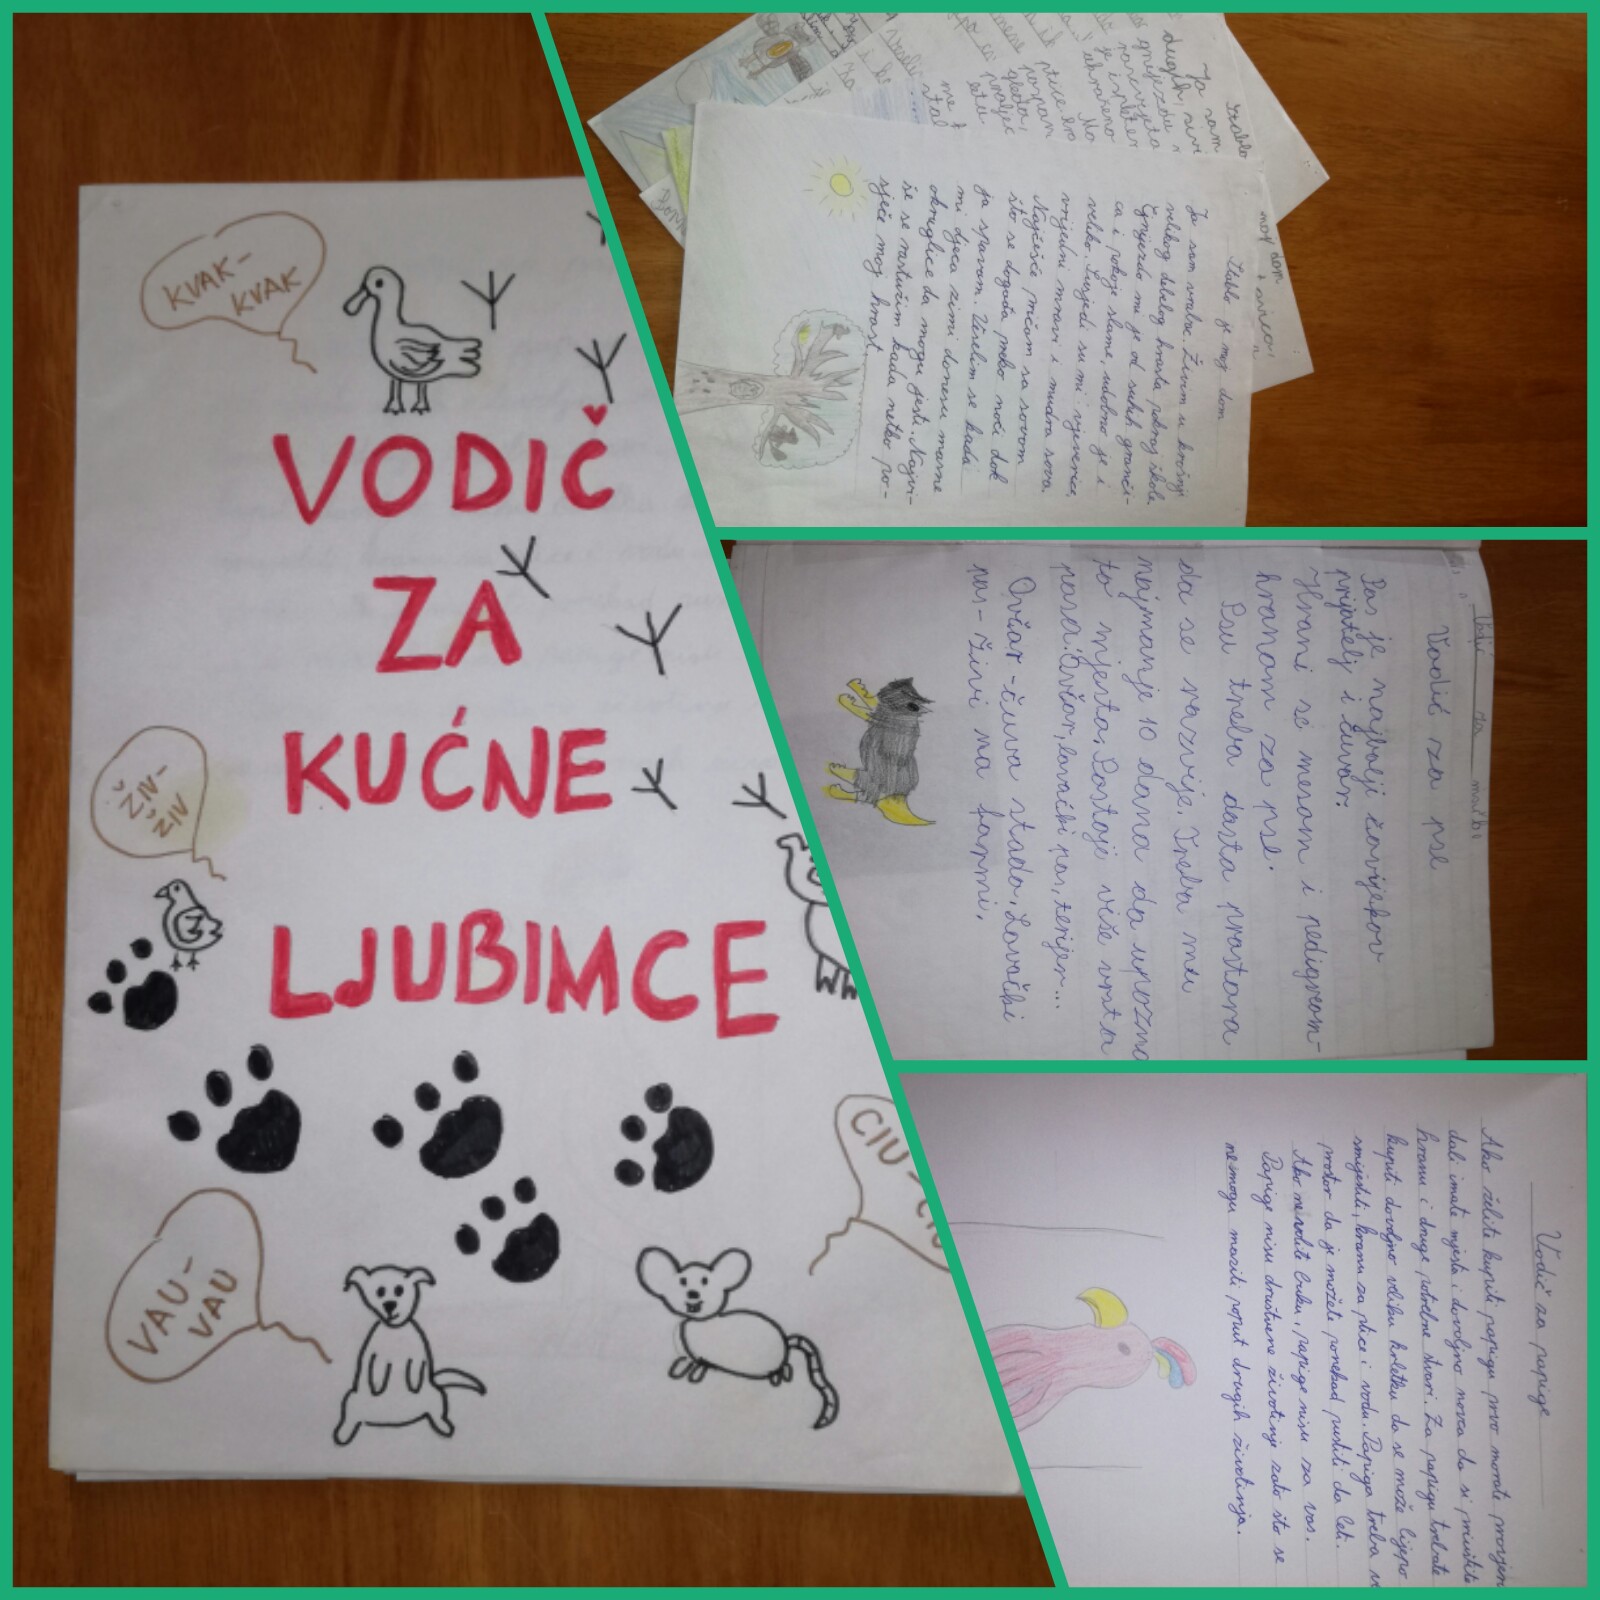 KVAK-
KVAK
VODIČ
ZA
KUĆNE
LJUBIMCE
ŽIV-
ŽIV
VAU-
VAU
CIU-
Stablo
Ja sam
moj dom
Stablo je moj dom
Ja sam vrabac. Živim u krošnji
velikog debelog hrasta pokraj škole.
Gnijezdo mi je od suhih granči-
ca i pokoje slame, udobno je i
veliko. Susjedi su mi vjeverice,
vrijedni mravi i mudra sova.
Najčešće pričam sa sovom
što se događa preko noći dok
ja spavam. Veselim se kada
mi djeca zimi donesu masne
okruglice da mogu jesti. Najvi-
še se rastužim kada netko po-
sječe moj hrast.
Vodič za pse
Pas je najbolji čovjekov
prijatelj i čuvar.
Hrani se mesom i pedigreom-
hranom za pse.
Psu treba dosta prostora
da se razvije. Treba mu
najmanje 10 dana da upozna
to mjesto. Postoji više vrsta
pasa: Ovčar, lovački pas, terijer...
Ovčar - čuva stado, Lovački
pas - živi na farmi.
Vodič za papige
Ako želite kupiti papigu prvo morate provjeri
dali imate mjesta i dovoljno novca da si priuštite
hranu i druge potrebne stvari. Za papigu trebate
kupiti dovoljno veliku krletku da se može lijepo
smjestiti, hranu za ptice i vodu. Papiga treba
prostor da je možete ponekad pustiti da leti.
Ako ne volite buku, papige nisu za vas.
Papige nisu društvene životinje zato što se
nemogu maziti poput drugih životinja.